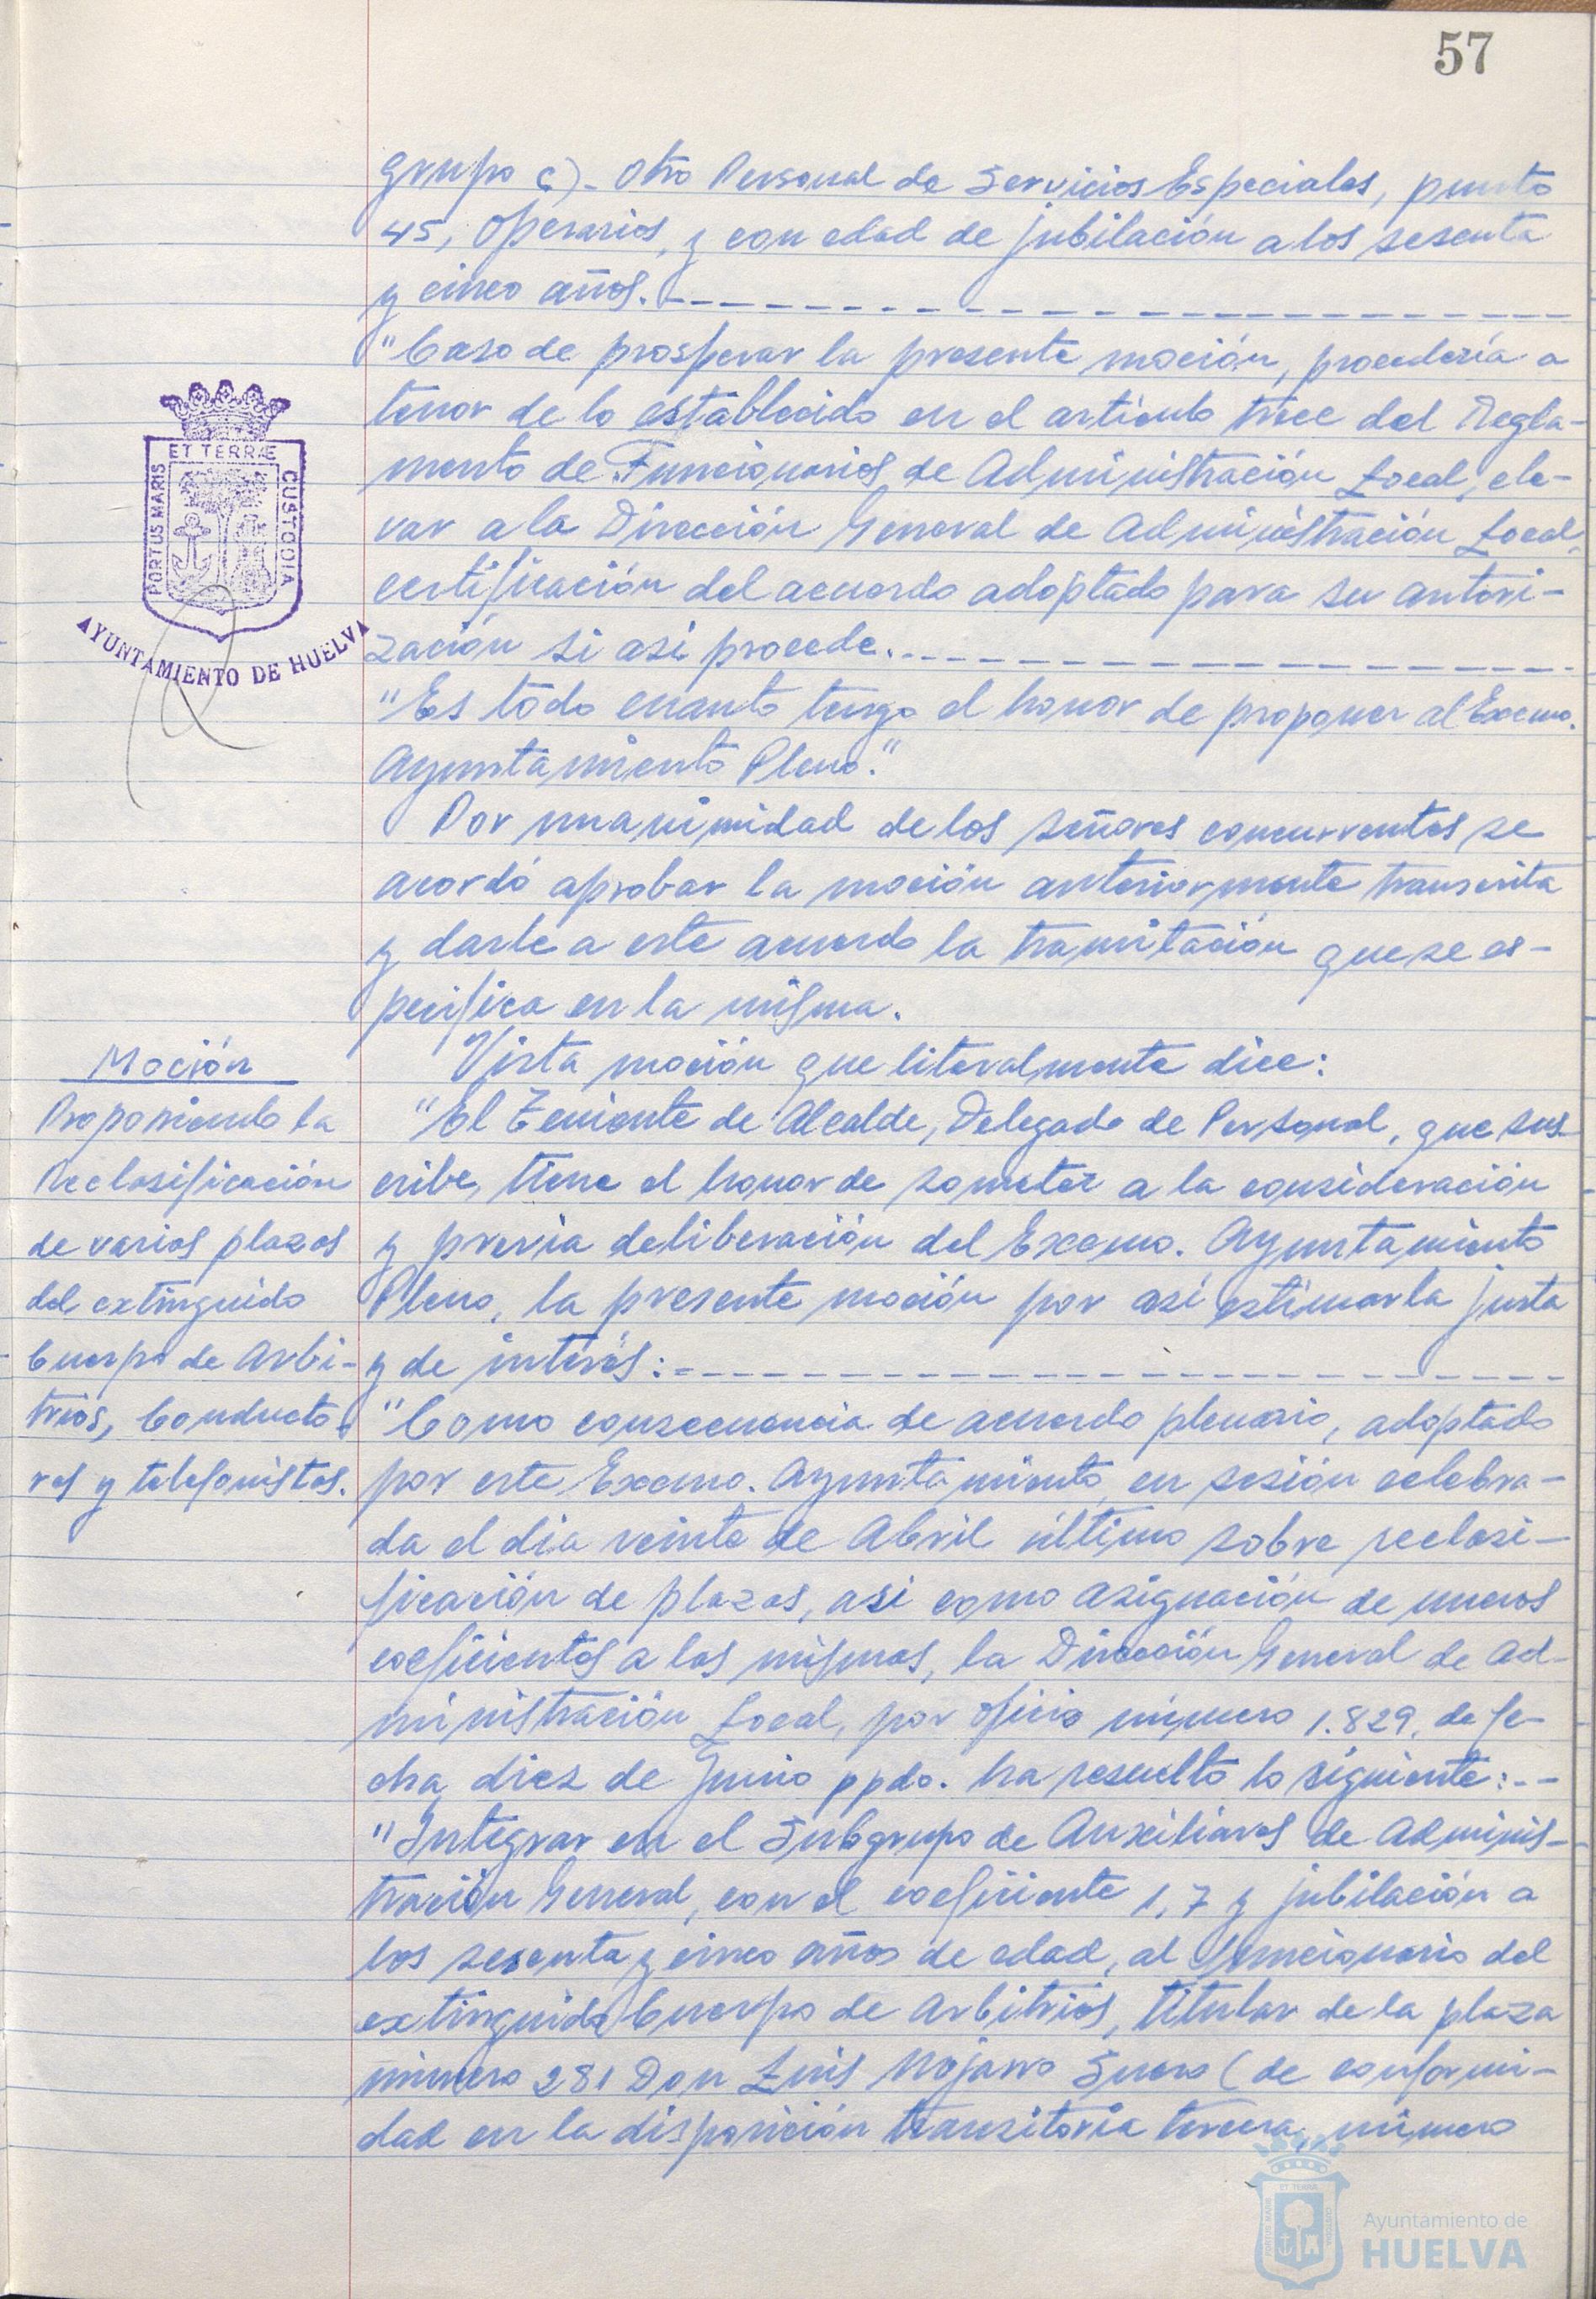 57
grupo c).- Otro Personal de Servicios Especiales, punto
45, Operarios, y con edad de jubilación a los sesenta
y cinco años.-
"Caso de prosperar la presente moción, procedería a
tenor de lo establecido en el artículo trece del Regla-
mento de Funcionarios de Administración Local, ele-
var a la Dirección General de Administración Local,
certificación del acuerdo adoptado para su autori-
zación si asi procede.-
"Es todo cuanto tengo el honor de proponer al Excmo.
Ayuntamiento Pleno."
Por unanimidad de los señores concurrentes se
acordó aprobar la moción anteriormente transcrita
y darle a este acuerdo la tramitación que se es-
pecifica en la misma.
ET TERRÆ
PORTUS MARIS
CUSTODIA
AYUNTAMIENTO DE HUELVA
Moción
Proponiendo la
Reclasificación
de varias plazas
del extinguido
Cuerpo de Arbi-
trios, Conducto-
res y telefonistas.
Vista moción que literalmente dice:
"El Teniente de Alcalde, Delegado de Personal, que sus-
cribe, tiene el honor de someter a la consideración
y previa deliberación del Excmo. Ayuntamiento
Pleno, la presente moción por asi estimarla justa
y de interés:-
"Como consecuencia de acuerdo plenario, adoptado
por este Excmo. Ayuntamiento, en sesión celebra-
da el dia veinte de Abril último sobre reclasi-
ficación de plazas, asi como asignación de nuevos
coeficientes a las mismas, la Dirección General de Ad-
ministración Local, por oficio número 1.829, de fe-
cha diez de Junio ppdo. ha resuelto lo siguiente:--
"Integrar en el Subgrupo de Auxiliares de Adminis-
tración General, con el coeficiente 1,7 y jubilación a
los sesenta y cinco años de edad, al funcionario del
extinguido Cuerpo de Arbitrios, titular de la plaza
número 281 Don Luis Mojarro Suero (de conformi-
dad en la disposición transitoria tercera, número
Ayuntamiento de
HUELVA